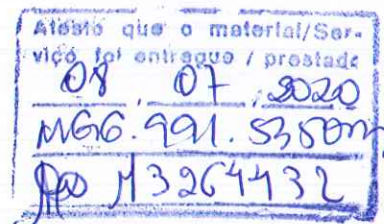 Atesto que o material/Ser-
viço foi entregue / prestado
08 07 2020
MG6.991.535
M3264432